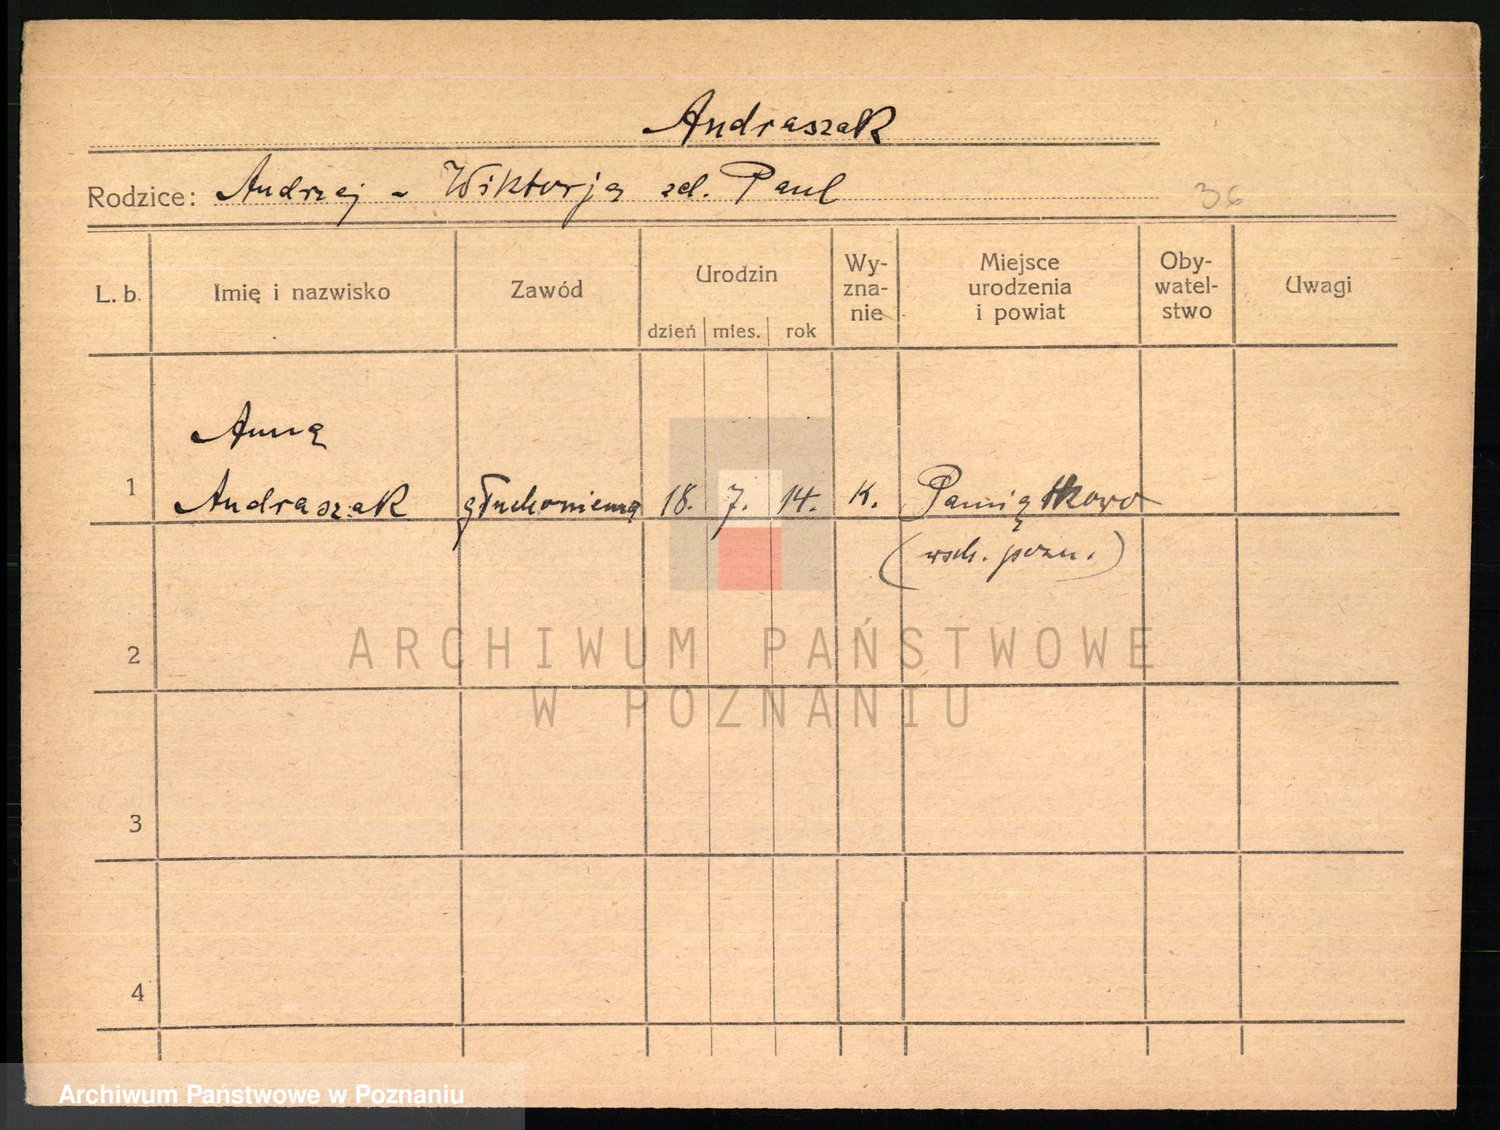 Andraszak
Rodzice: Andrzej - Wiktorja zd. Paul
36
L. b. Imię i nazwisko Zawód Urodzin Wy- Miejsce Oby- Uwagi
zna- urodzenia watel-
nie i powiat stwo
dzień mies. rok
Anna
1 Andraszak głuchoniema 18. 7. 14. K. Pamiątkowo
(wsch. pozn.)
2
ARCHIWUM PAŃSTWOWE
W POZNANIU
3
4
Archiwum Państwowe w Poznaniu